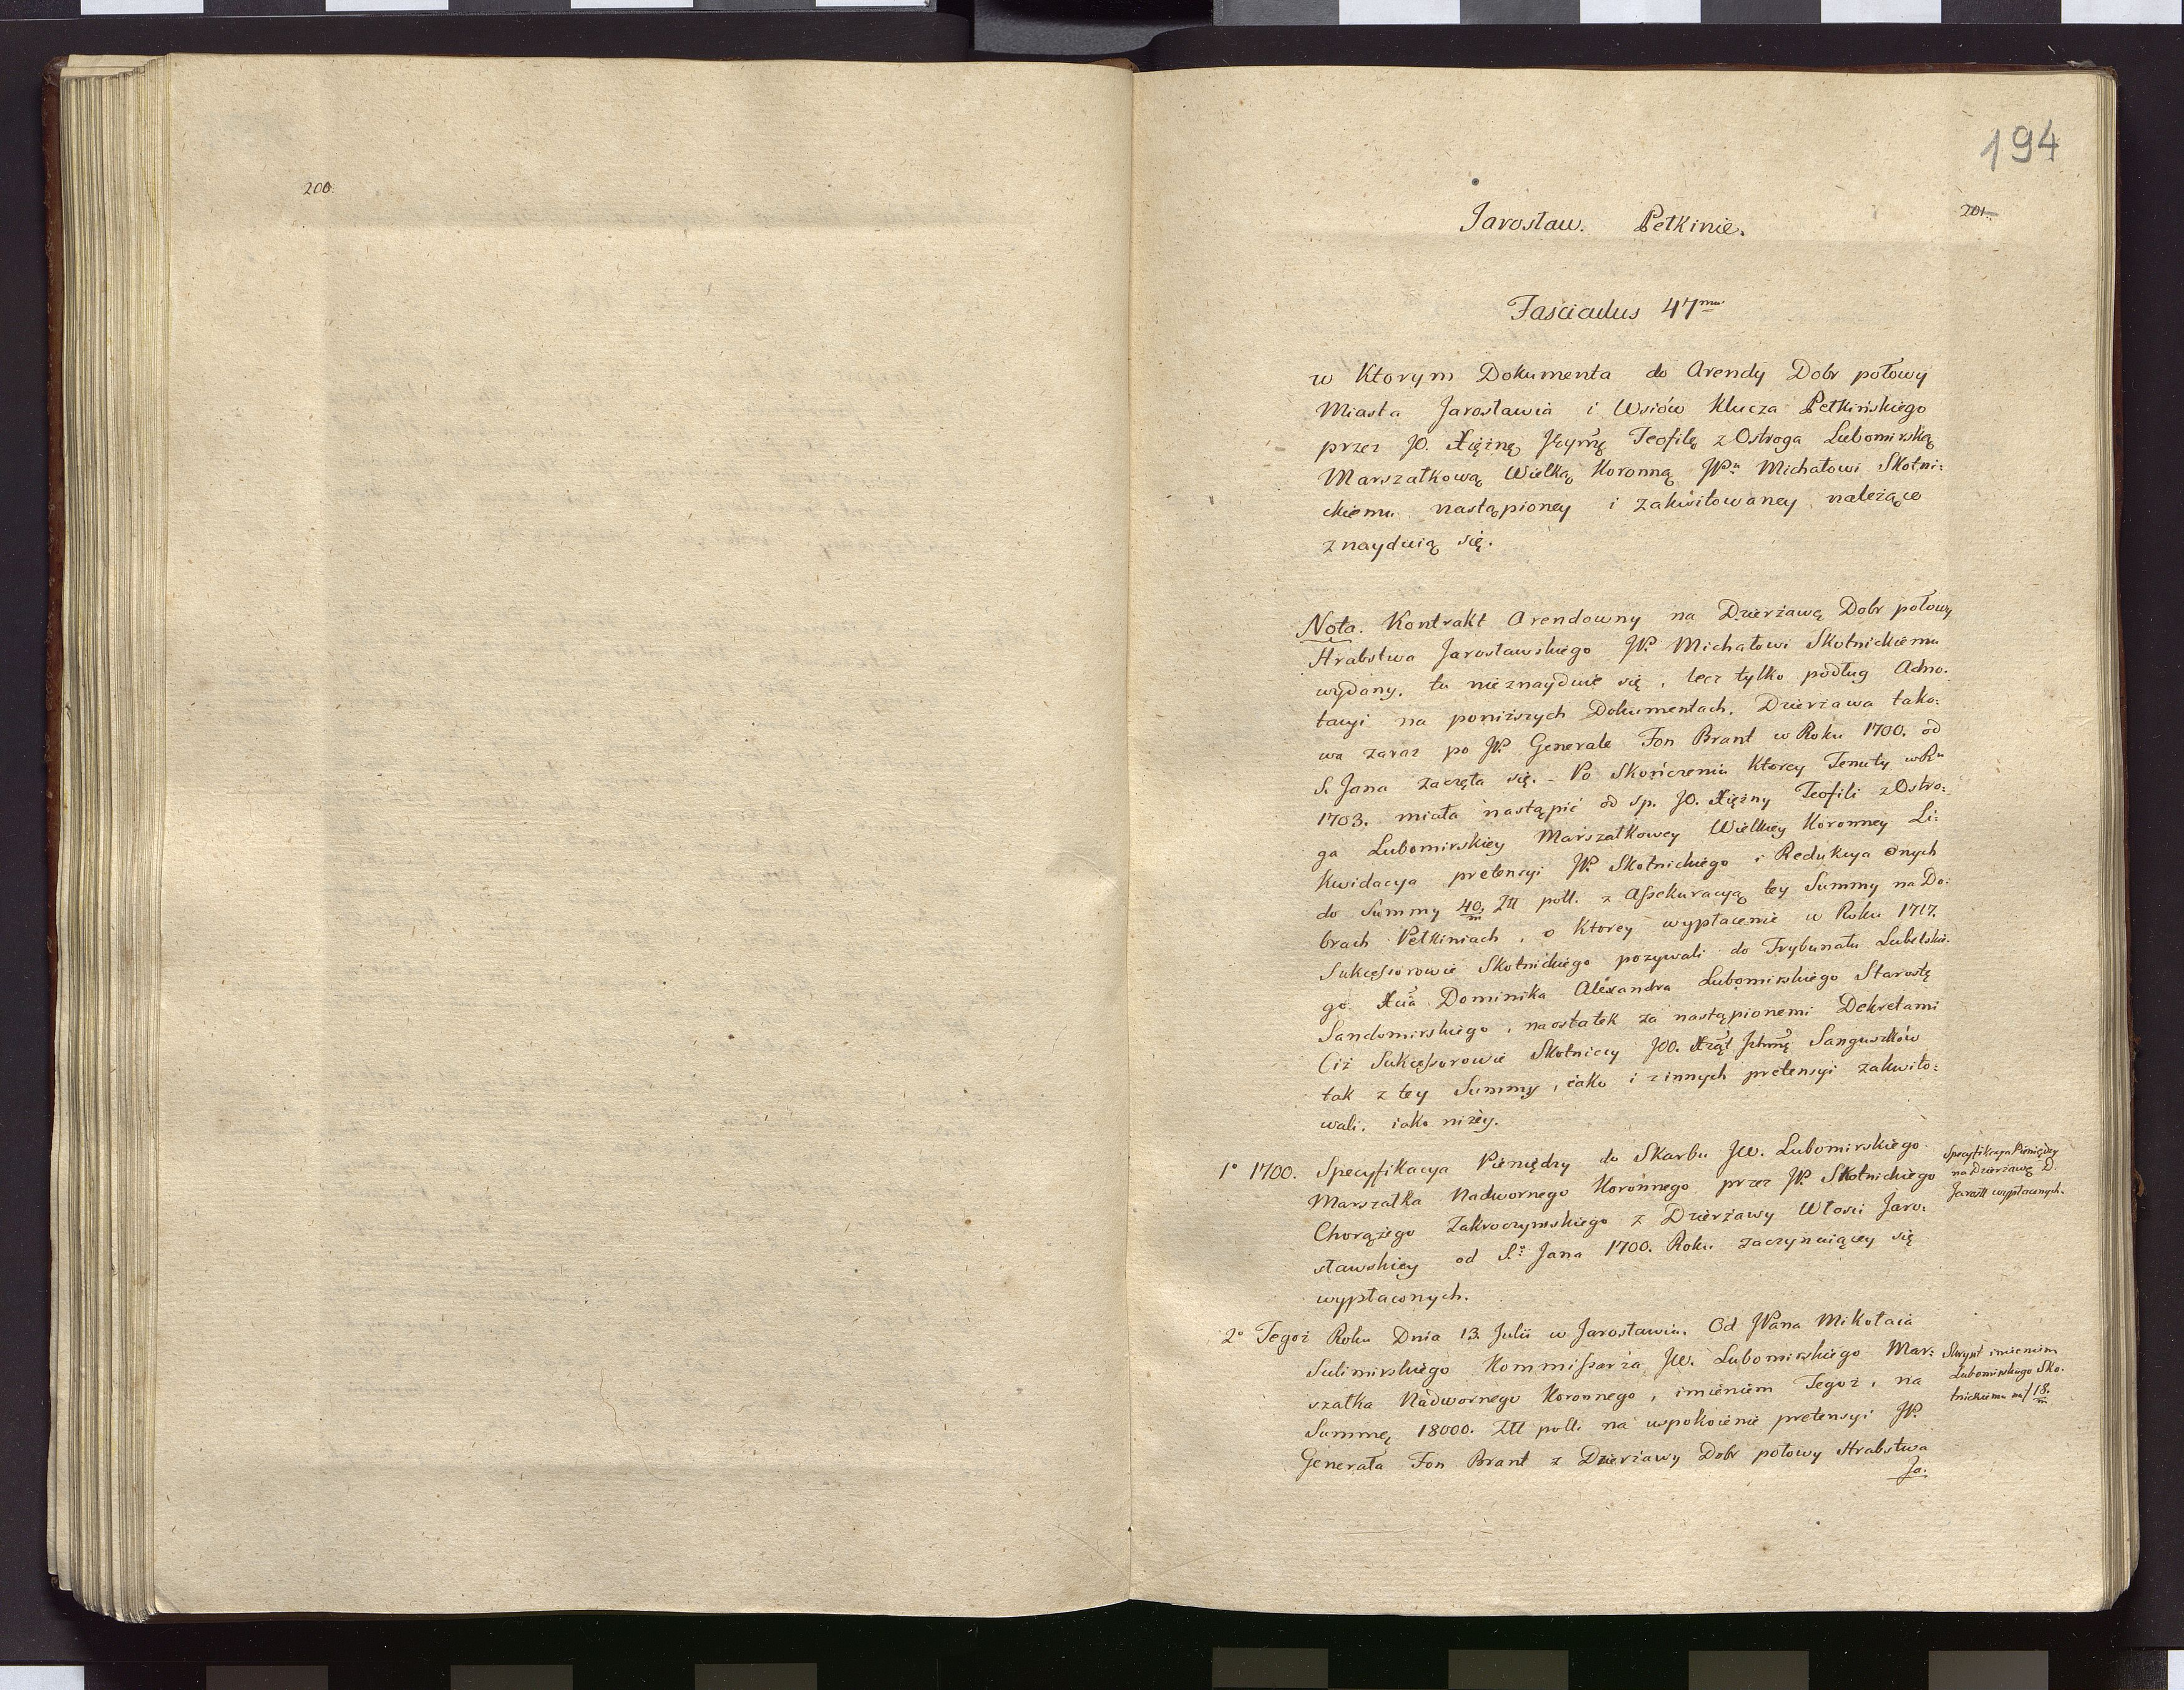 200.
194
201.
Jarosław. Pełkinie.
Fasciculus 47mus
w Ktorym Dokumenta do Arendy Dobr połowy
Miasta Jarosławia i Wsiów Klucza Pełkińskiego
przez JO. Xiężnę Jeymę Teofilę z Ostroga Lubomirską
Marszałkową Wielką Koronną JPu Michałowi Skotni:
ckiemu nastąpioney i zakwitowaney należące
znayduią się.
Nota. Kontrakt Arendowny na Dzierżawę Dobr połowy
Hrabstwa Jarosławskiego JP. Michałowi Skotnickiemu
wydany, tu nieznayduie się, lecz tylko podług Adno:
tacyi na poniższych Dokumentach, Dzierżawa tako:
wa zaraz po JP. Generale Fon Brant w Roku 1700. od
S. Jana zaczęła się. - Po Skończeniu Ktorey Tenuty wRu
1703. miała nastąpić od sp. JO. Xiężny Teofili z Ostro:
ga Lubomirskiey Marszałkowey Wielkiey Koronney Li:
kwidacya pretensyi JP. Skotnickiego i Redukcya onych
do Summy 40/m Zll poll. z Assekuracyą tey Summy na Do:
brach Pełkiniach, o Ktorey wypłacenie w Roku 1717.
Sukcessorowie Skotnickiego pozywali do Trybunału Lubelskie:
go Xcia Dominika Alexandra Lubomirskiego Starostę
Sandomirskiego, naostatek za nastąpionemi Dekretami
Ciż Sukcessorowie Skotniccy JOO. Xząt Sanguszków
tak z tey Summy, iako i z innych pretensyi zakwito:
wali. iako niżey.
1o 1700. Specyfikacya Pieniędzy do Skarbu JW. Lubomirskiego
Marszałka Nadwornego Koronnego przez JP. Skotnickiego
Chorążego Zakroczymskiego z Dzierżawy Włości Jaro:
sławskiey od So Jana 1700. Roku zaczynaiącey się
wypłaconych.
Specyfikacya Pieniędzy
na Dzierżawę D.
Jarosłł wypłaconych.
2o Tegoż Roku Dnia 13. Julii w Jarosławiu. Od JPana Mikołaia
Sulimirskiego Kommissarza JW. Lubomirskiego Mar:
szałka Nadwornego Koronnego, imieniem Tegoż, na
Summę 18000. Zll poll. na uspokoienie pretensyi JP.
Generała Fon Brant z Dzierżawy Dobr połowy Hrabstwa
Ja:
Skrypt imieniem
Lubomirskiego Sko:
tnickiemu na f 18/m